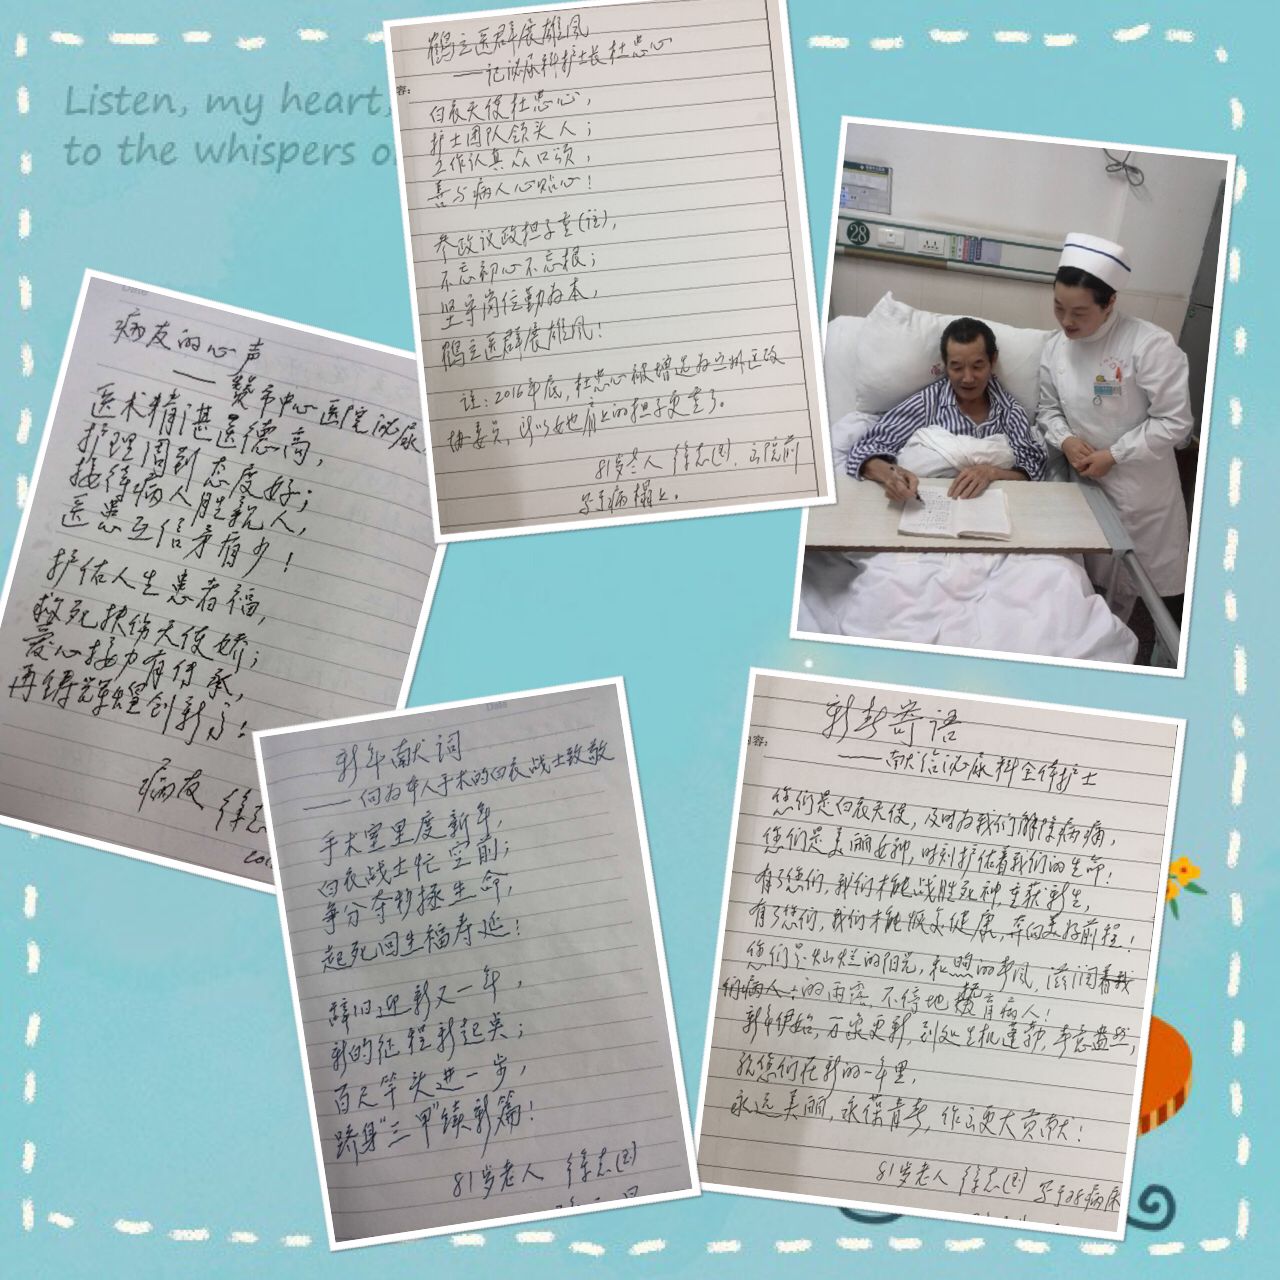 Listen, my heart,
to the whispers o
鹤立医群展雄风
——记泌尿科护士长杜忠心
容:
白衣天使杜忠心，
护士团队领头人；
工作认真众口颂，
善与病人心贴心！
参政议政担子重(注)，
不忘初心不忘根；
坚守岗位勤为本，
鹤立医群展雄风！
注：2016年底，杜忠心被增选为 区政
协委员，所以她肩上的担子更重了。
81岁老人 徐志国，出院前
写于病榻上。
28
Date
病友的心声
—— 市中心医院泌尿
医术精湛医德高，
护理周到态度好；
接待病人胜亲人，
医患互信矛盾少！
护佑人生患者福，
救死扶伤天使娇；
爱心接力有传承，
再铸辉煌创新高！
病友 徐志
201
Date
新年献词
——向为本人手术的白衣战士致敬
手术室里度新年，
白衣战士忙空前；
争分夺秒拯生命，
起死回生福寿延！
辞旧迎新又一年，
新的征程新起点；
百尺竿头进一步，
跻身"三甲"续新篇！
81岁老人 徐志国
新春寄语
内容:
——献给泌尿科全体护士
您们是白衣天使，及时为我们解除病痛，
您们是美丽女神，时刻护佑着我们的生命！
有了您们，我们才能战胜死神，重获新生，
有了您们，我们才能恢复健康，奔向美好前程！
您们是灿烂的阳光，和煦的春风，滋润着我
们病人的雨露，不停地抚育病人！
新年伊始，万象更新，到处生机蓬勃，春意盎然，
祝您们在新的一年里，
永远美丽，永葆青春，作出更大贡献！
81岁老人 徐志国 写于28病床